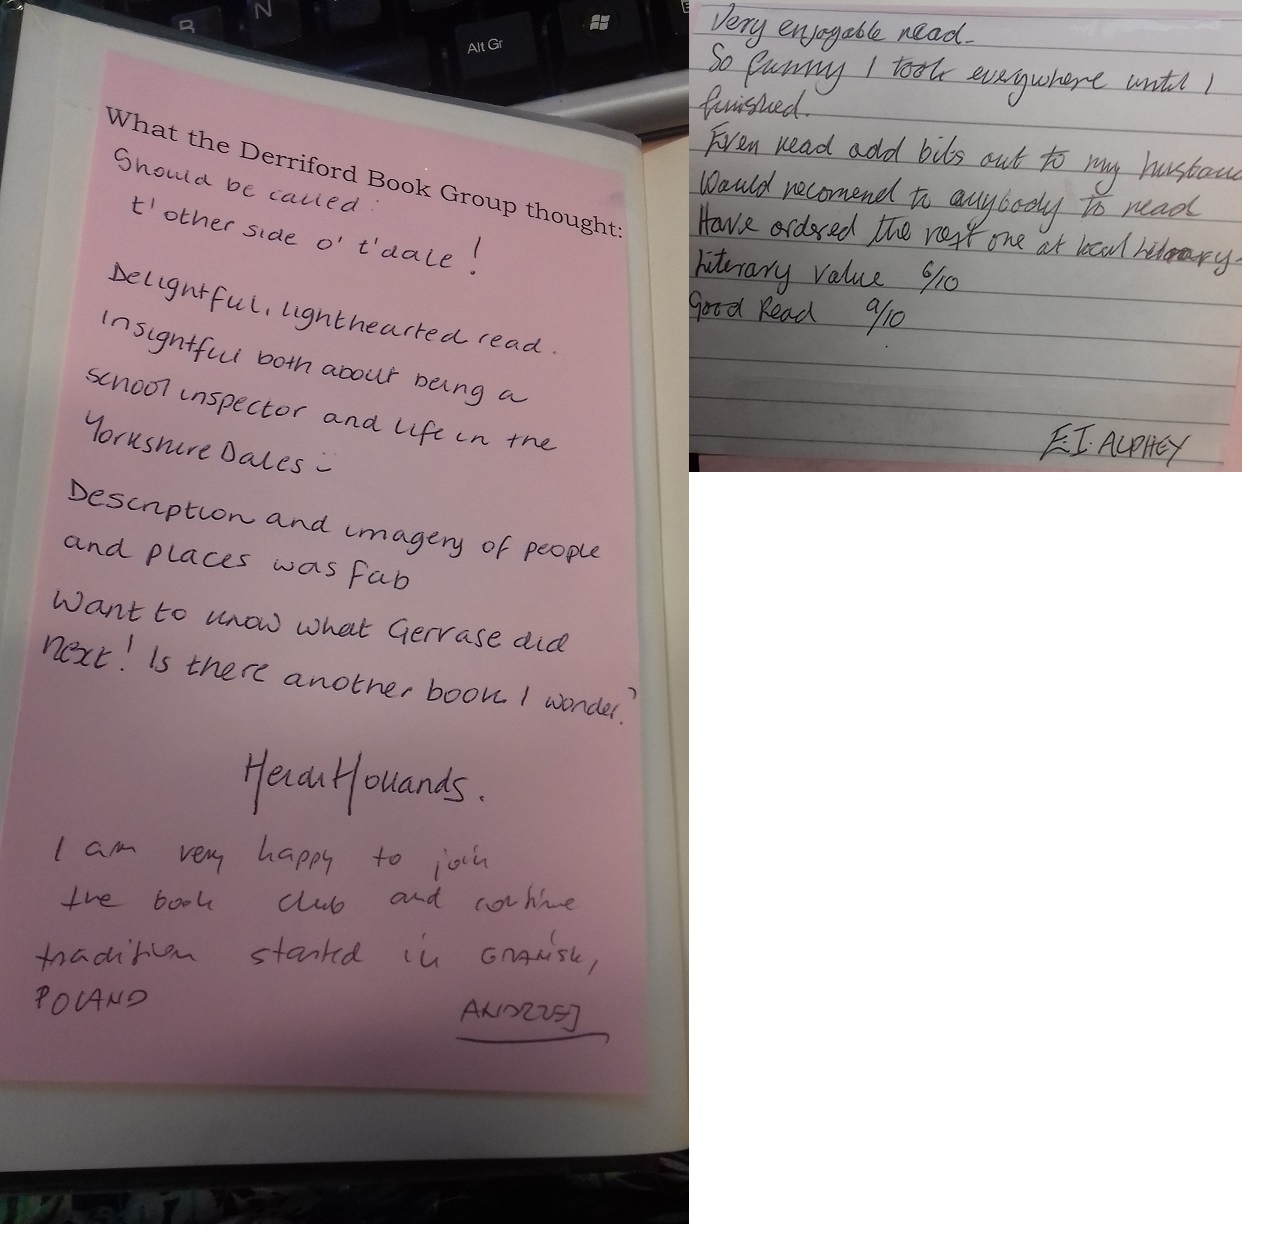 B
N
Alt Gr
What the Derriford Book Group thought:
Should be called:
t' other side o' t'dale!
Delightful, lighthearted read.
Insightful both about being a
school inspector and life in the
Yorkshire Dales
Description and imagery of people
and places was fab
Want to know what Gervase did
next! Is there another book I wonder?
Heidi Hollands.
I am very happy to join
the book club and continue
tradition started in
POLAND
ANDRZEJ
Very enjoyable read.
So funny I took everywhere until I
finished.
Even read add bits out to my husband
Would recomend to anybody to read
Have ordered the next one at local library.
Literary value 6/10
Good Read 9/10
E.I. ALPHEY